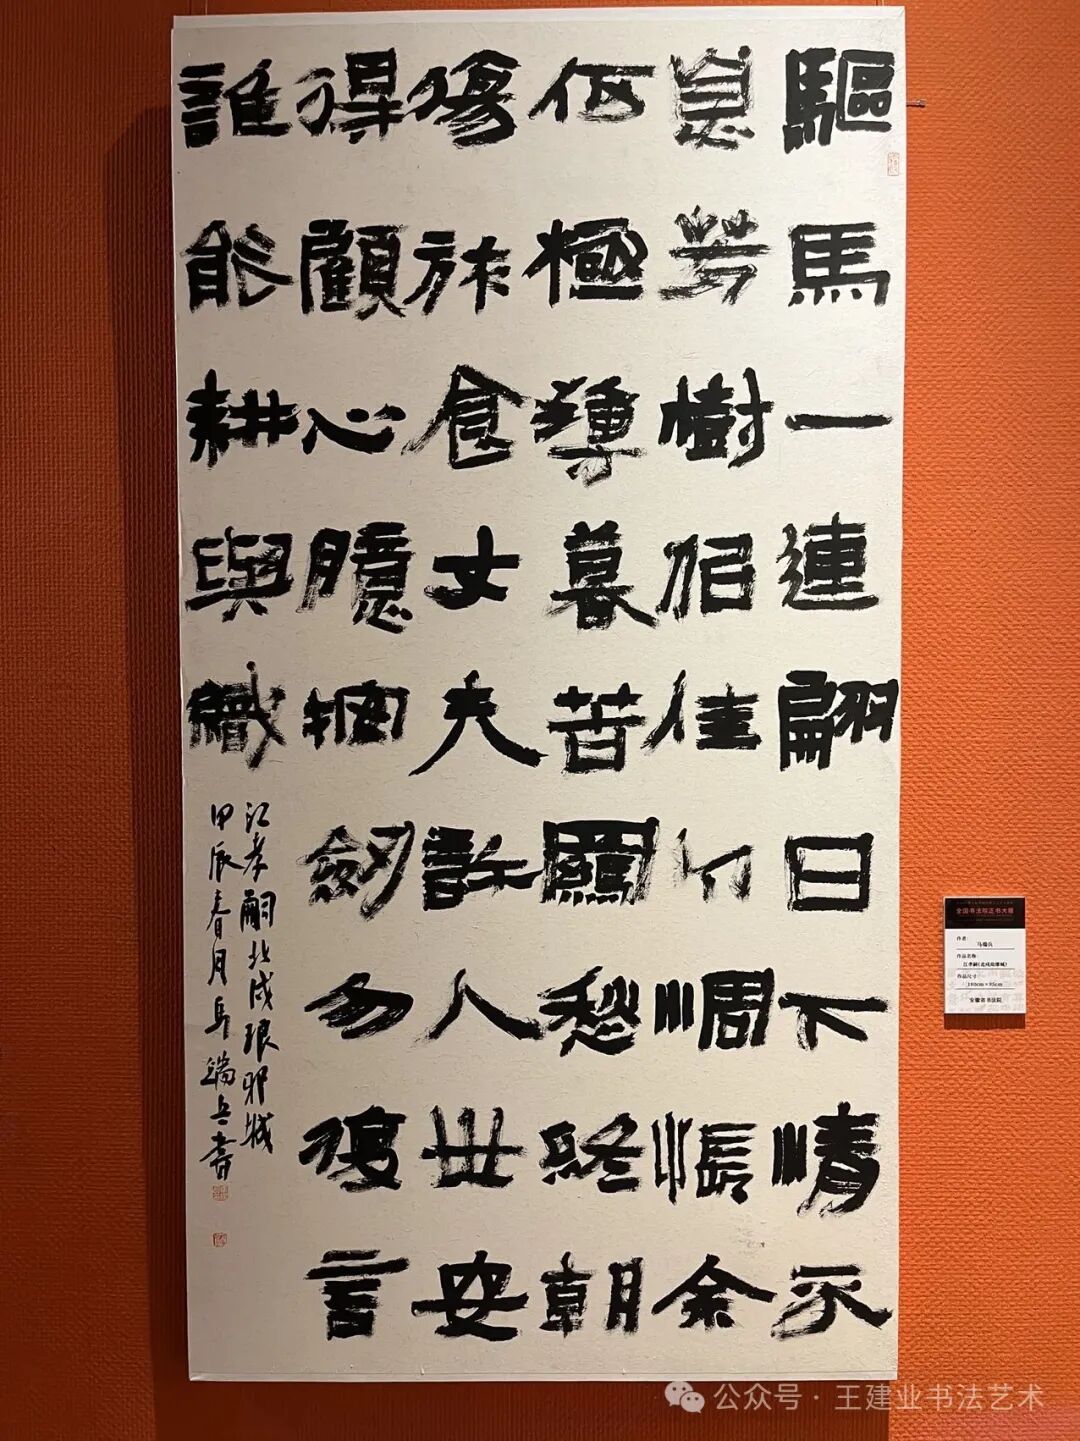 驅馬一連翩日下情不
息芳樹似佳人惆悵余
何極薄暮苦羈愁終朝
傷旅食丈夫許人世安
得顧心臆按劍勿復言
誰能耕與織
江孝嗣北戍琅邪城
甲辰春月馬端兵書
全国书法院正书大展
作者:
马端兵
作品名称:
江孝嗣《北戍琅琊城》
作品尺寸:
180cm×95cm
安徽省书法院
公众号·王建业书法艺术